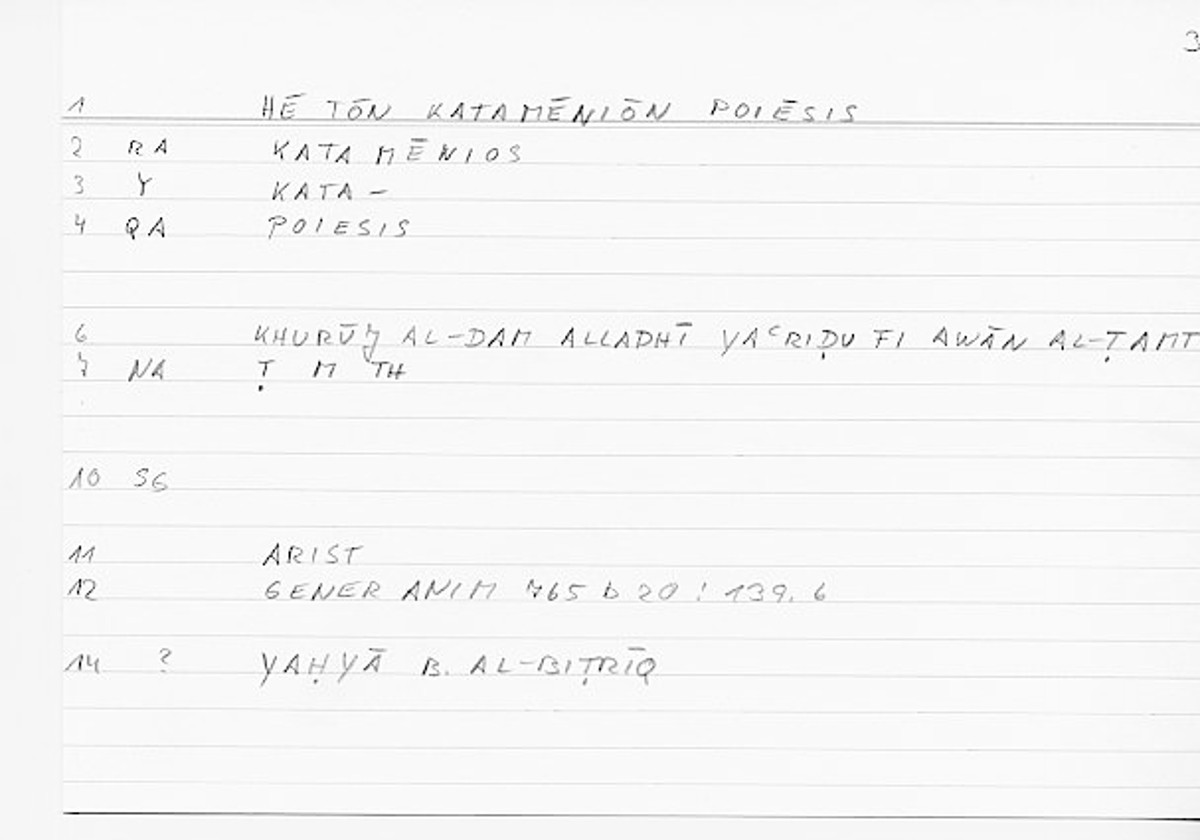 3
1 HĒ TŌN KATAMĒNIŌN POIĒSIS
2 RA KATAMĒNIOS
3 Y KATA-
4 QA POIESIS
6 KHURŪJ AL-DAM ALLADHĪ YAʿRIḌU FI AWĀN AL-ṬAMT
7 NA Ṭ M TH
10 SG
11 ARIST
12 GENER ANIM 765 b 20 : 139. 6
14 ? YAḤYĀ B. AL-BIṬRĪQ